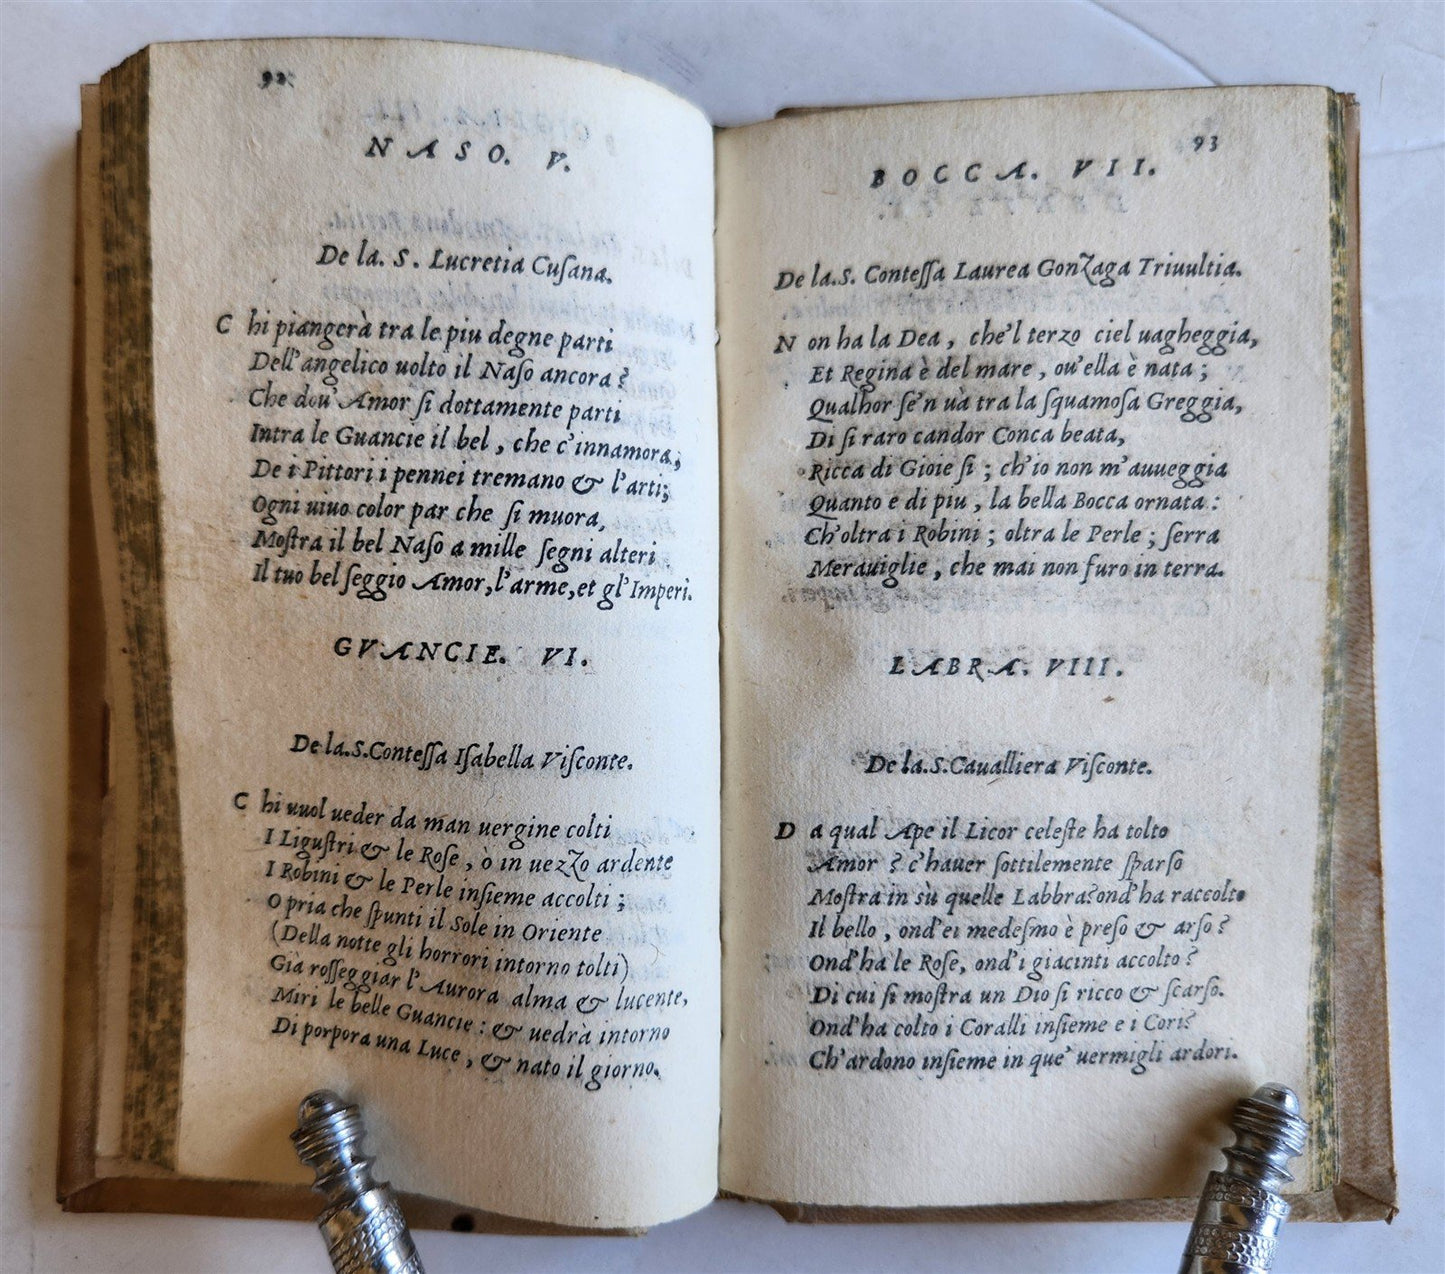 92
NASO. V.
De la. S. Lucretia Cuſana.
Chi piangerà tra le piu degne parti
Dell'angelico uolto il Naſo ancora?
Che dou' Amor ſi dottamente parti
Intra le Guancie il bel, che c'innamora;
De i Pittori i pennei tremano & l'arti;
Ogni uiuo color par che ſi muora,
Moſtra il bel Naſo a mille ſegni alteri
Il tuo bel ſeggio Amor, l'arme, et gl'Imperi.
GVANCIE. VI.
De la.S.Conteſſa Iſabella Viſconte.
Chi uuol ueder da man uergine colti
I Liguſtri & le Roſe, ò in uezzo ardente
I Robini & le Perle inſieme accolti;
O pria che ſpunti il Sole in Oriente
(Della notte gli horrori intorno tolti)
Già roſſeggiar l'Aurora alma & lucente,
Miri le belle Guancie: & uedrà intorno
Di porpora una Luce, & nato il giorno.
93
BOCCA. VII.
De la.S. Conteſſa Laurea Gonzaga Triuultia.
Non ha la Dea, che'l terzo ciel uagheggia,
Et Regina è del mare, ou'ella è nata;
Qualhor ſe'n uà tra la ſquamoſa Greggia,
Di ſi raro candor Conca beata,
Ricca di Gioie ſi; ch'io non m'auueggia
Quanto e di piu, la bella Bocca ornata:
Ch'oltra i Robini; oltra le Perle; ſerra
Merauiglie, che mai non furo in terra.
LABRA. VIII.
De la.S.Caualliera Viſconte.
Da qual Ape il Licor celeſte ha tolto
Amor? c'hauer ſottilemente ſparſo
Moſtra in sù quelle Labbra? ond'ha raccolto
Il bello, ond'ei medeſmo è preſo & arſo?
Ond'ha le Roſe, ond'i giacinti accolto?
Di cui ſi moſtra un Dio ſi ricco & ſcarſo.
Ond'ha colto i Coralli inſieme e i Cori?
Ch'ardono inſieme in que' uermigli ardori.